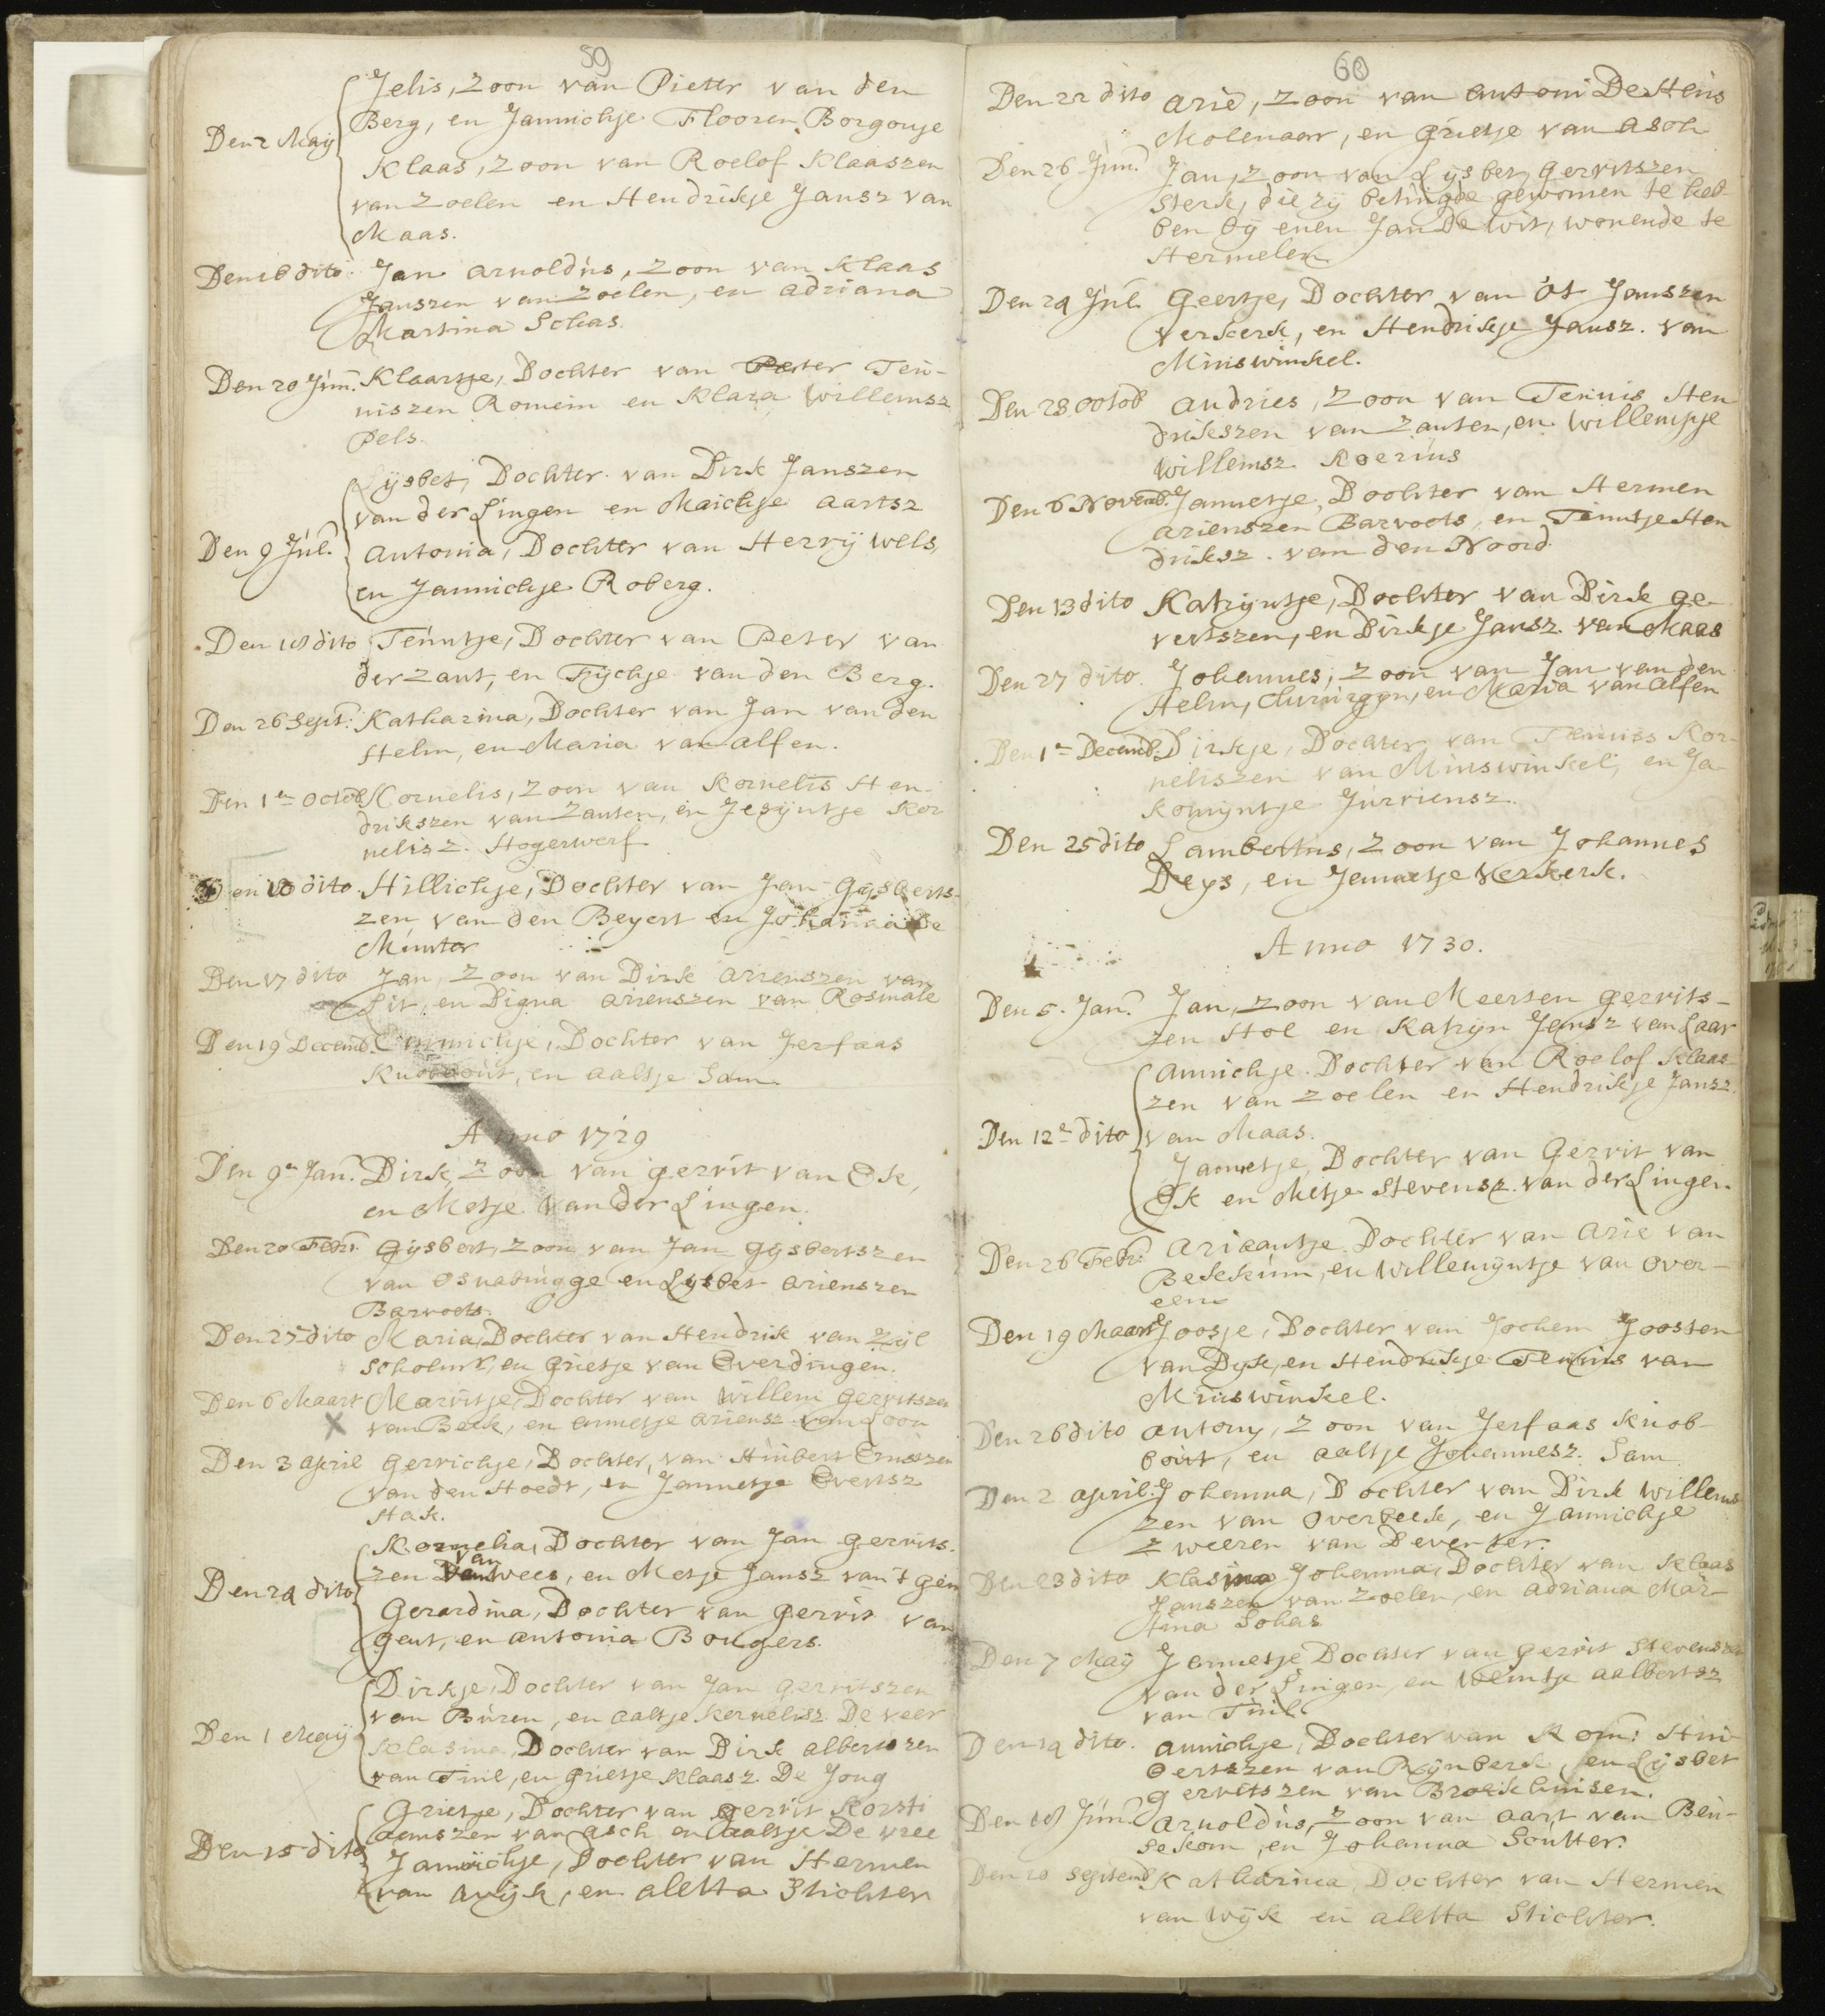 59
Jelis, Zoon van Pieter van den
Berg, en Jannichje Flooren Borgonje
Den 2 Maÿ
Klaas, Zoon van Roelof Klaaszen
van Zoelen en Hendrikje Jansz van
Maas.
Den 16 dito Jan Arnoldus, Zoon van Klaas
Janszen van Zoelen, en Adriana
Martina Schas.
Den 20 Jun. Klaartje, Dochter van Peter Teu-
niszen Romein en Klara Willemsz
Pels.
Lysbet, Dochter van Dirk Janszen
van der Lingen en Maichje Aartsz
Den 9 Jul.
Antonia, Dochter van Herrÿ Wels,
en Jannichje Roberg.
Den 18 dito Teuntje, Dochter van Peter van
der Zant, en Fÿchje van den Berg.
Den 26 Sept. Katharina, Dochter van Jan van den
Helm, en Maria van Alfen.
Den 1e Octob. Kornelis, Zoon van Kornelis Hen-
drikszen van Zanten, en Jesÿntje Kor
nelisz. Hogerwerf
Den 10 dito Hillichje, Dochter van Jan Gysberts-
zen van den Beyert en Johanna De
Munter
Den 17 dito Jan, Zoon van Dirk Arienszen van
Lit, en Digna Arienszen van Rosmale
Den 19 Decemb. Dochter van Jerfaas
Knobbout, en Aaltje Sam.
Anno 1729
Den 9e Jan. Dirk, Zoon van Gerrit van Ek,
en Metje van der Lingen.
Den 20 Febr. Gysbert, Zoon van Jan Gysbertszen
van Osnabrugge en Lysbet Arienszen
Barvoets.
Den 27 dito Maria, Dochter van Hendrik van Zyl
Scholmr, en Grietje van Everdingen.
Den 6 Maart Marritje, Dochter van Willem Gerritszen
van Beek, en Annetje Ariensz van Loon
Den 3 April Gerrichje, Dochter, van Huibert Ernszen
van den Hoedt, en Jannetje Evertsz
Hak.
Kornelia, Dochter van Jan Gerrits-
van
zen Wees, en Metje Jansz van 't Gein
Den 24 dito
Gerardina, Dochter van Gerrit van
Gent, en Antonia Bongers.
Dirkje, Dochter van Jan Gerritszen
van Buren, en Aaltje Kernelisz. De Veer
Den 1 Maÿ
Klasina, Dochter van Dirk Albertszen
van Tuil, en Grietje Klaasz. De Jong
Grietje, Dochter van Gerrit Korsti
aanszen van Asch en Aaltje De Vree
Den 15 dito
Jannichje, Dochter van Hermen
van Wijk, en Aletta Stichter
60
Den 22 dito Arie, Zoon van Antoni De Heus
Molenaar, en Grietje van Asch
Den 26 Jun. Jan, Zoon van Lysbet Gerritszen
Sterk, die zÿ betuigde gewonnen te heb-
ben bÿ enen Jan De Wit, wonende te
Hermelen.
Den 24 Jul. Geertje, Dochter van Ot Janszen
Verkerk, en Hendrikje Jansz. van
Minswinkel.
Den 28 Octob Andries, Zoon van Teunis Hen
drikszen van Zanten, en Willempje
Willemsz. Roerius
Den 6 Novemb. Jannetje, Dochter van Hermen
Arienszen Barvoets, en Teuntje Hen
driksz. van den Noord.
Den 13 dito Katryntje, Dochter van Dirk Ge-
vertszen, en Dirkje Jansz. van Maas
Den 27 dito. Johannes, Zoon van Jan van den
Helm, Chirurgyn, en Maria van Alfen
Den 1e Decemb. Dirkje, Dochter van Teunis Kor-
neliszen van Minswinkel, en Ja-
komyntje Jurriensz.
Den 25 dito Lambertus, Zoon van Johannes
Deys, en Jannetje Verkerk.
Anno 1730.
Den 5. Jan. Jan, Zoon van Meerten Gerrits-
zen Hol en Katryn Jansz van Laar
Annichje Dochter van Roelof Klaas-
zen van Zoelen en Hendrikje Jansz.
Den 12e dito van Maas.
Jannetje, Dochter van Gerrit van
Ek en Metje Stevensz. van der Lingen
Den 26 Febr. Ariaantje Dochter van Arie van
Bekkum, en Willemyntje van Over-
eem
Den 19 Maart Joosje, Dochter van Jochem Joosten
van Dyk, en Hendrikje Teunis van
Minswinkel.
Den 26 dito Antony, Zoon van Jerfaas Knob-
bout, en Aaltje Johannesz. Sam
Den 2 April. Johanna, Dochter van Dirk Willems
zen van Overbeek, en Jannichje
Zweeren van Deventer.
Den 23 dito Klasina Johanna, Dochter van Klaas
Janszen van Zoelen, en Adriana Mar-
tina Schas
Den 7 Maÿ Jannetje Dochter van Gerrit Stevenszen
van der Lingen, en Weintje Aalbertsz
van Tuil.
Den 14 dito. Annichje, Dochter van Korn: Hui-
bertszen van Rynberk, en Lysbet
Gerritszen van Broekhuisen.
Den 18 Jun. Arnoldus, Zoon van Aart van Beu-
sekom, en Johanna Soutter.
Den 10 Septemb. Katharina, Dochter van Hermen
van Wÿk en Aletta Stichter.